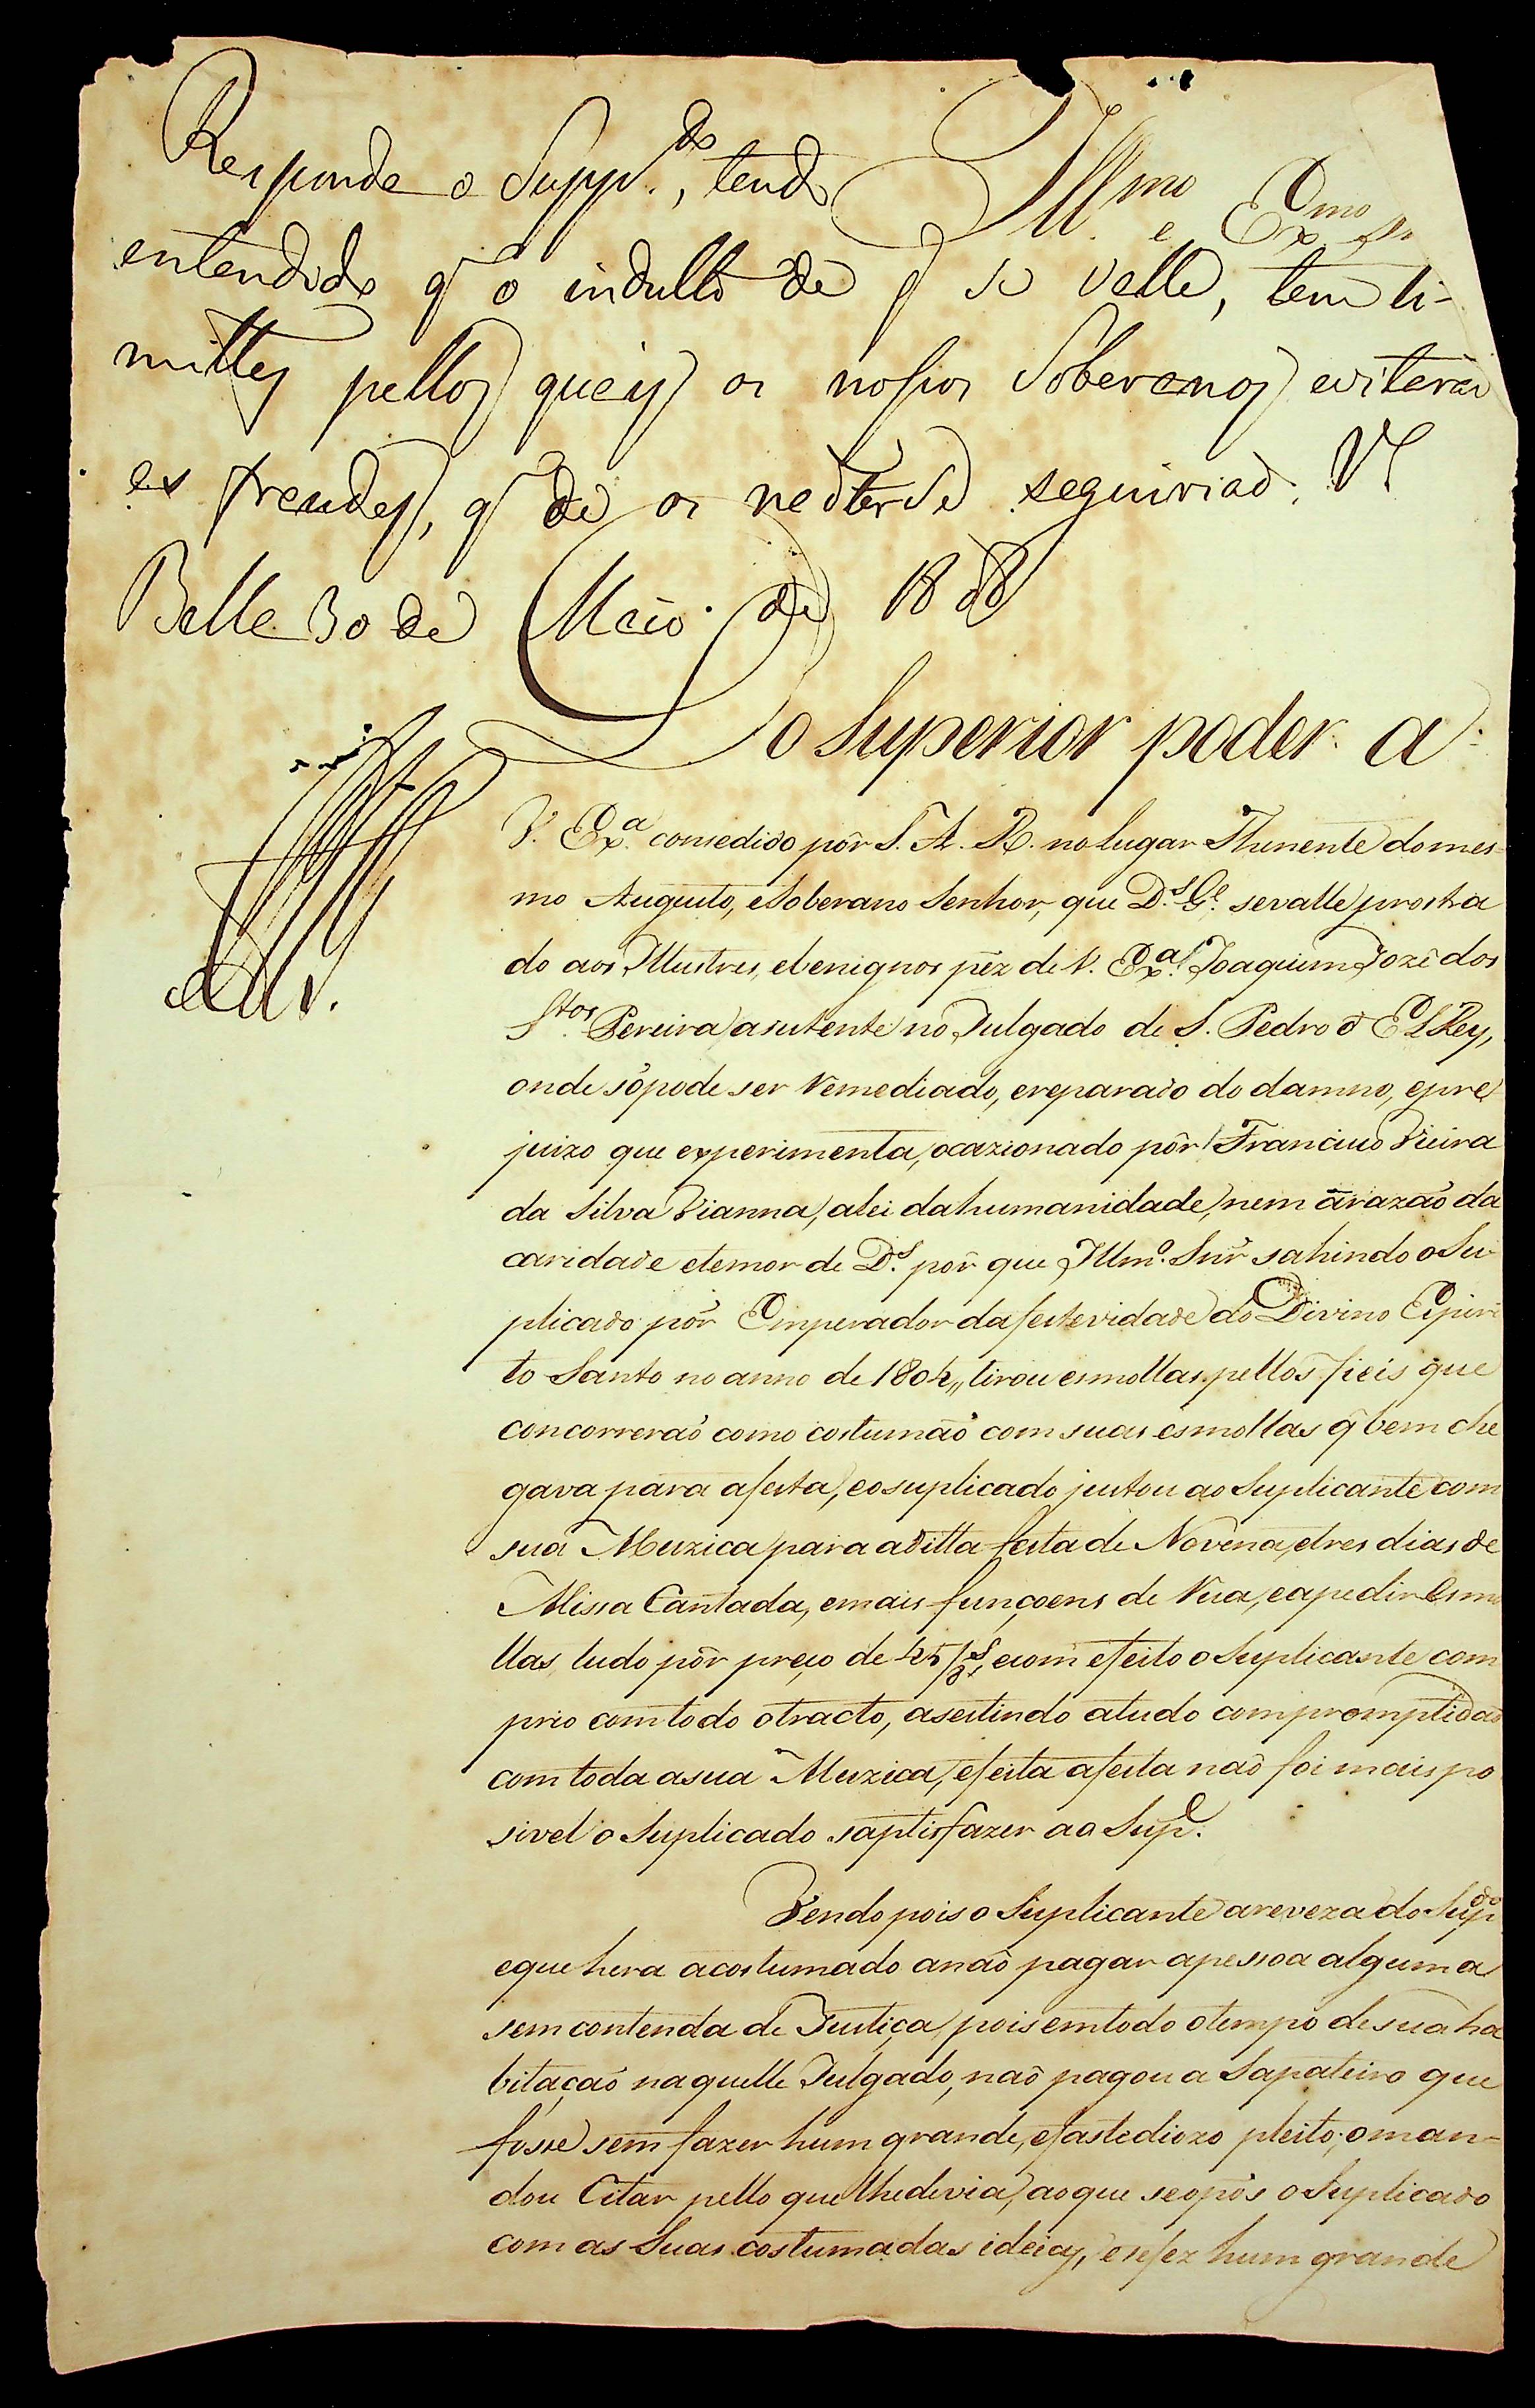 Responde o Supp.do, tendo
Illmo. e Exmo. Sr.
entendido q̃ o indulto de q̃ se valle, tem li-
mittes pellos quaes os nossos Soberanos evitarão
as fraudes, q̃ de os não ter se seguirião. Va
Bella 30 de Maio de 1808
Do Superior poder a
V. Exa. consedido pôr S. A. R. no Lugar Thenente do mes-
mo Augusto, e Soberano Senhor, que D.s G.e se valle prostra
do aos Illustres, e benignos péz de V. Exa. Joaquim Jozé dos
Stos. Pereira asistente no Julgado de S. Pedro d' El Rey,
onde só pode ser Remediado, e reparado do damno, e pre
juizo que experimenta, ocazionado pôr Francisco Vieira
da Silva Vianna, a lei da humanidade, nem a razão da
caridade e temor de D.s pôr que Illmo. Snr̃ sahindo o Su-
plicado pôr Emperador da festevidade do Divino Espiri
to Santo no anno de 1804,, tirou esmollas pellos fieis que
concorrerão como costumão com suas esmollas q̃ bem che
gava para a festa, e o suplicado justou ao Suplicante com
sua Muzica para a ditta festa de Novena, e tres dias de
Missa Cantada, e mais funçoens de Rua, e a pedir Esmo
llas, tudo pôr preço de 45/8.s, e com efeito o Suplicante com
prio com todo o tracto, asestindo a tudo com promptidão
com toda a sua Muzica, e feita a festa não foi mais po
sivel o Suplicado saptisfazer ao Sup.e
Vendo pois o Suplicante a reveza do Sup.do
e que hera acostumado a não pagar a pessoa alguma
sem contenda de Justiça, pois em todo o tempo de sua ha
bitação naquelle Julgado, não pagou a Sapateiro que
fosse sem fazer hum grande, e fastediozo pleito; o man-
dou Citar pello que lhe devia, ao que se opôs o Suplicado
com as Suas costumadas ideias, e se fez hum grande